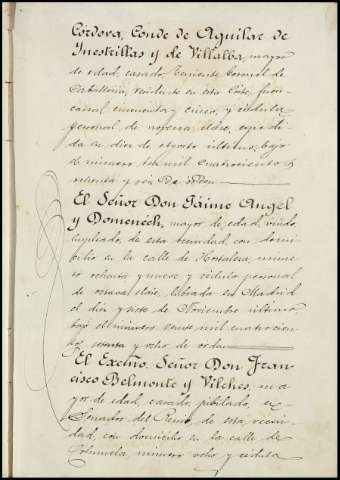 Córdova, Conde de Aguilar de
Inestrillas y de Villalba, mayor
de edad, casado, Teniente Coronel de
Caballería, residente en esta Corte, Fuen-
carral cincuenta y cinco, y cédula
personal de novena clase, expedi-
da en diez de último, bajo
de número mil cuatrocientos
setenta y seis de orden
El Señor Don Jaime Angel
y Domenéch, mayor de edad, viudo,
Empleado, de esta vecindad, con domi-
cilio en la calle de Hortaleza, núme-
ro ochenta y nueve y cédula personal
de octava clase, librada en Madrid
el día y siete de Noviembre último,
bajo el número veinte mil cuatrocien-
tos y ocho de orden
El Excmo. Señor Don Fran-
cisco Belmonte y Vilches, ma-
yor de edad, casado, jubilado, ex
Senador del Reino, de esta vecin-
dad, con domicilio en la calle de
número ocho y cédula